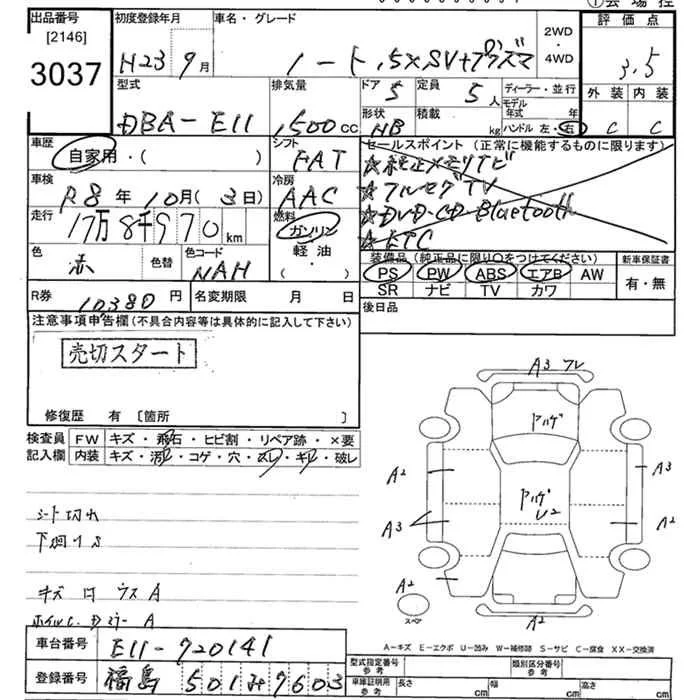 出品番号
[2146]
3037
初度登録年月
H23 9月
車名・グレード
ノート 1.5X SV+プラズマ
2WD
・
4WD
評価点
3.5
外装 内装
C C
型式
DBA-E11
排気量
1,500 cc
ドア 5
定員 5人
形状 HB
積載 kg
ディーラー・並行
モデル年式 年
ハンドル 左・右
車歴
自家用・( )
シフト
FAT
セールスポイント (正常に機能するものに限ります)
☆純正メモリナビ
☆フルセグTV
☆DVD・CD Bluetooth
☆ETC
車検
R8年10月(3日)
冷房
AAC
走行
17万8千970km
燃料
ガソリン
軽油
( ・ )
色
赤
色替
色コード
NAH
装備品 (純正品に限り○をつけてください)
PS PW ABS エアB AW
SR ナビ TV カワ
新車保証書
有・無
R券 10380円
名変期限 月 日
後日品
注意事項申告欄(不具合内容等は具体的に記入して下さい)
売切スタート
修復歴 有 〔箇所 〕
検査員記入欄
FW キズ・飛石・ヒビ割・リペア跡・×要
内装 キズ・汚レ・コゲ・穴・スレ・キレ・破レ
シート切れ
下回りS
キズ
A
A
A3
ヤハゲ
A2
A3
ヤハゲ
A3
A2
A2
A2
スペア
A-キズ E-エクボ U-凹み W-補修跡 S-サビ C-腐食 XX-交換済
車台番号 E11-720141
登録番号 福島 501 7603
型式指定番号 参考
類別区分番号 参考
車庫証明用 参考
長さ cm 幅 cm 高さ cm